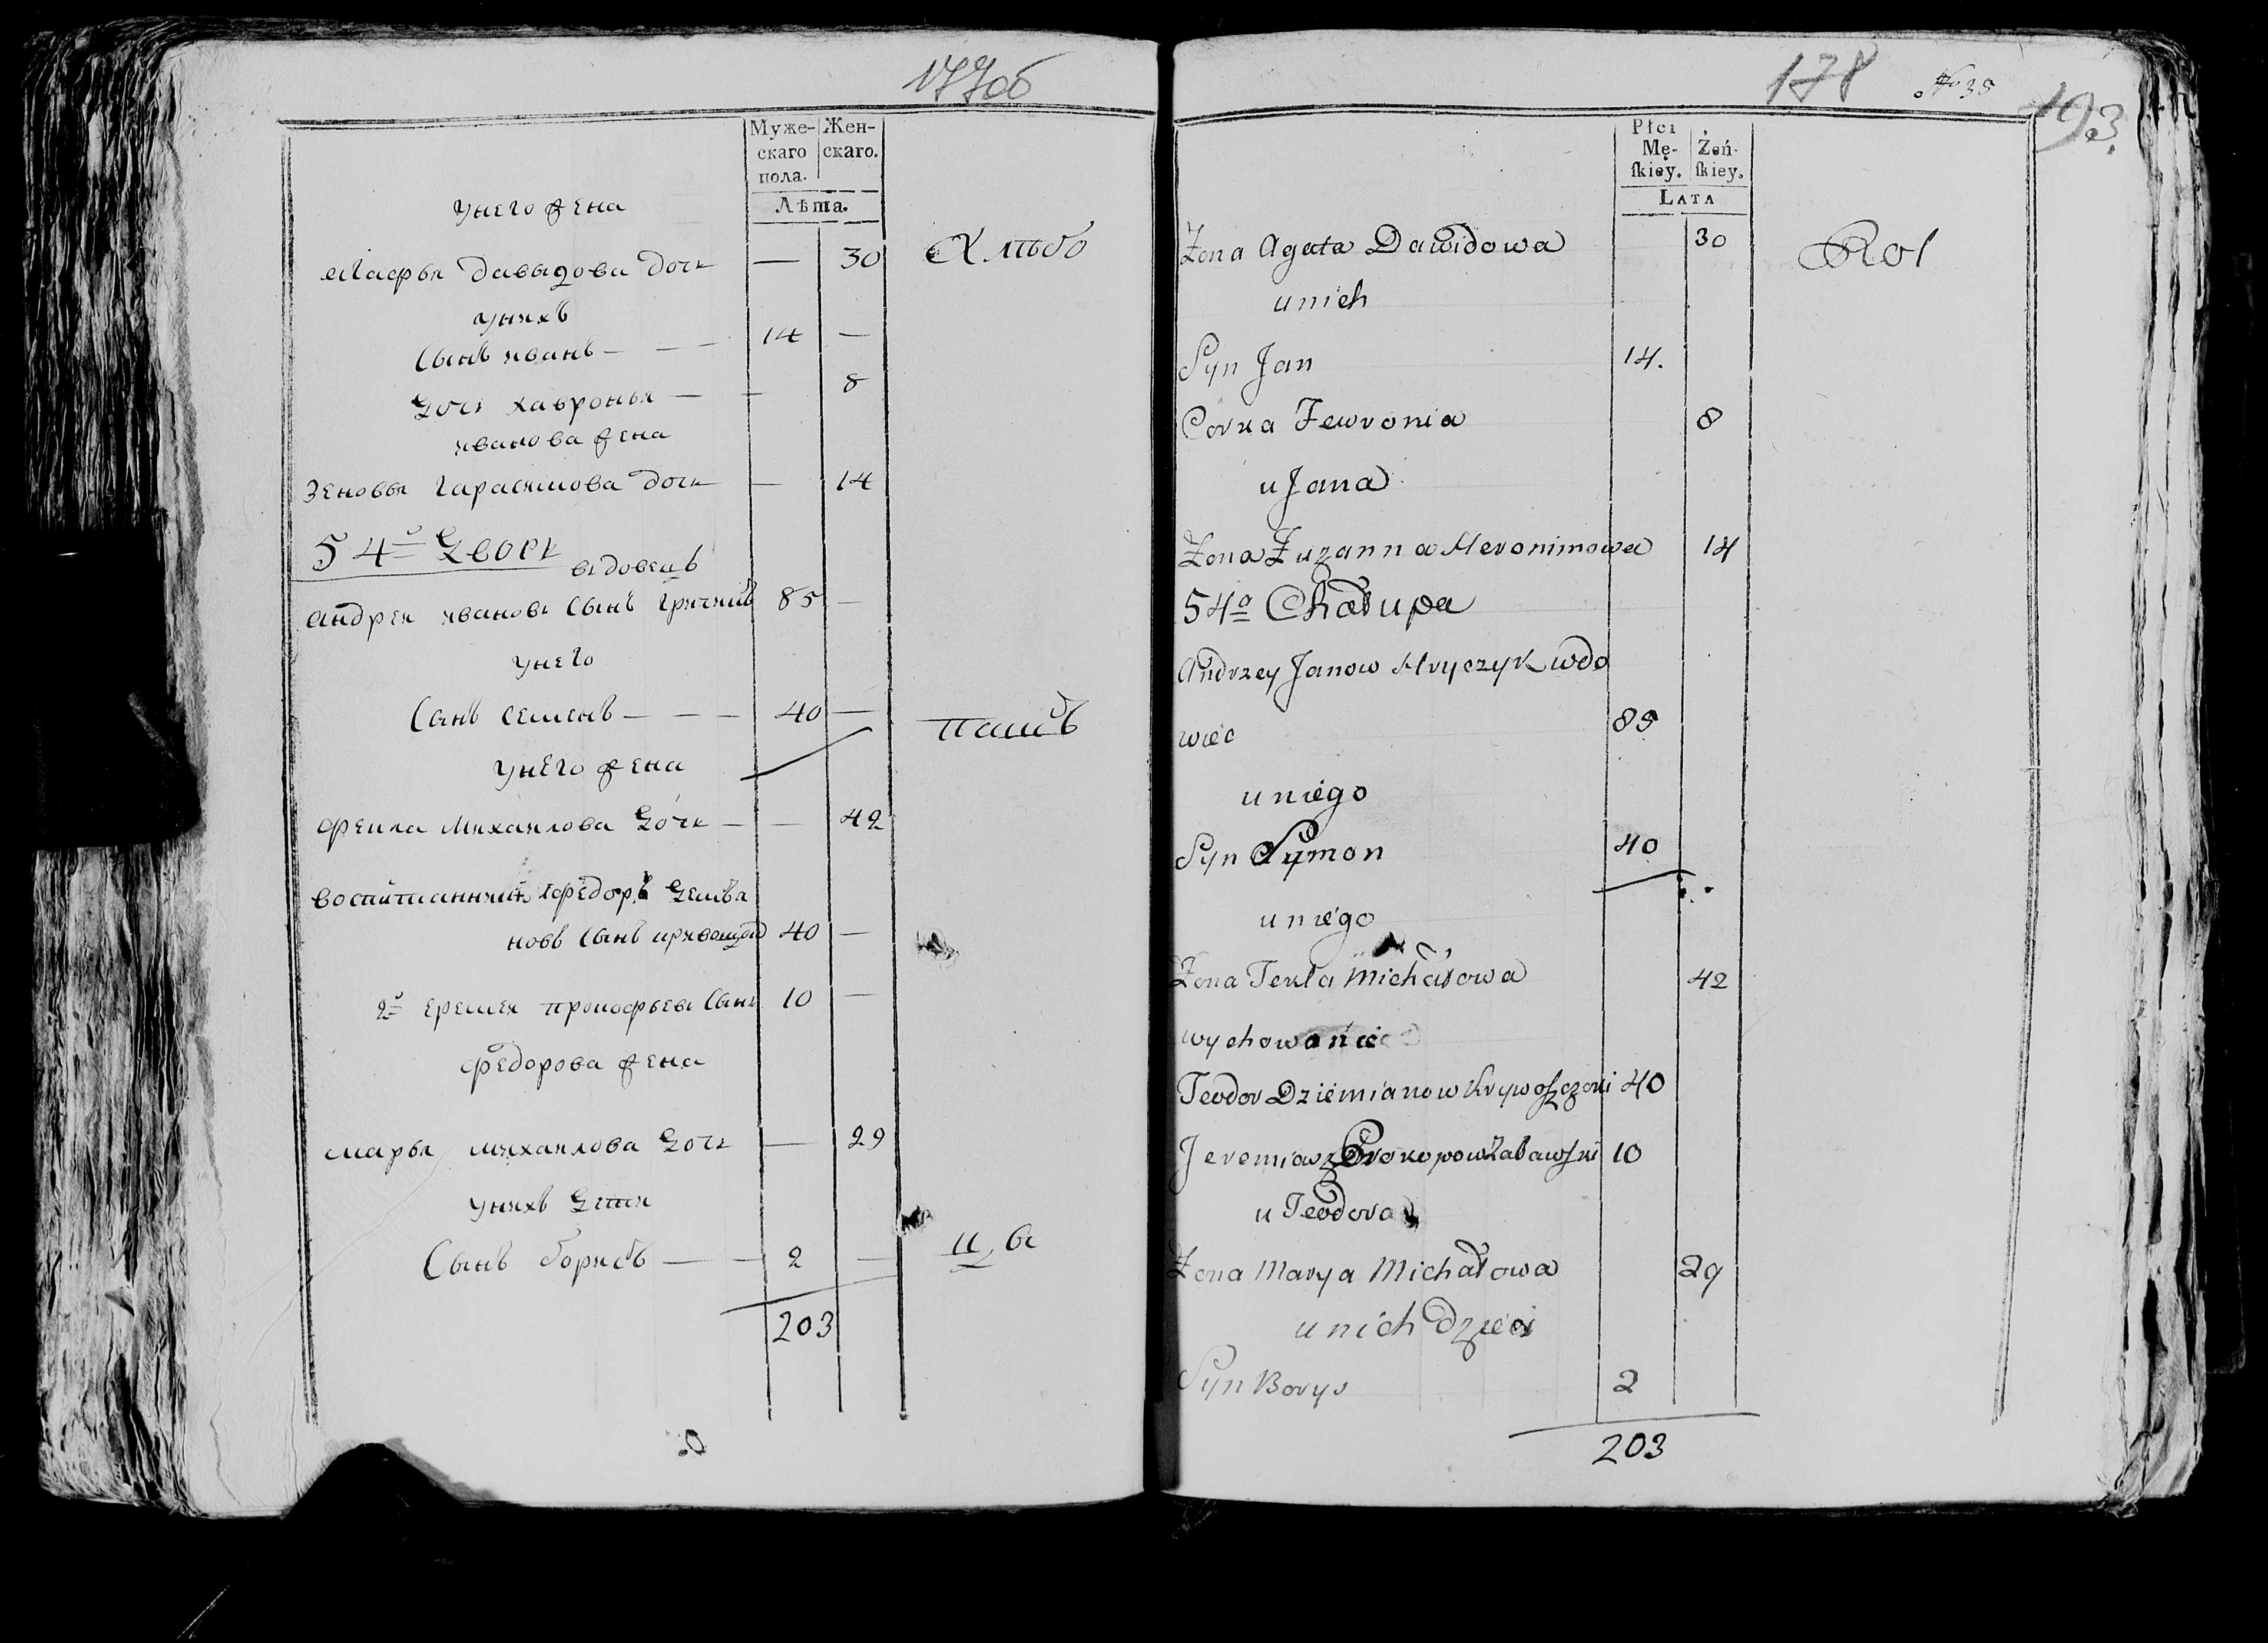 177об
Муже-
скаго
пола.
Жен-
скаго.
Лѣта.
унего жена
Агафья давыдова дочь — 30
Хлѣбо
унихъ
Сынъ иванъ — — — 14 —
дочь хавронья — — 8
иванова жена
Зеновья гарасимова дочь — 14
54й дворъ
вдовецъ
андрей ивановъ Сынъ 85 —
унего
Сынъ семенъ — — — 40 —
паш
унего жена
михайлова дочь — — 42
федоръ демья
новъ Сынъ 40 —
2й еремей прокофьевъ Сынъ 10 —
федорова жена
марья михайлова дочь — 29
унихъ дети
Сынъ борисъ — — 2 —
203
178
No 35
193.
Płci
Mę-
ſkiey.
Żeń-
ſkiey.
LATA
Żona Agata Dawidowa 30
Rol
unich
Syn Jan 14.
Corka Fewronia 8
u Jana
Żona Zuzanna Heronimowa 14
54a Chałupa
Andrzey Janow Hryczyk wdo
wiec 85
uniego
Syn Symon 40
uniego
Żona Tekla Michałowa 42
wychowańce
Teodor Dziemianow 40
Jeremiasz Prokopow 10
u Teodora
Żona Marya Michałowa 29
unich dzieci
Syn Borys 2
203